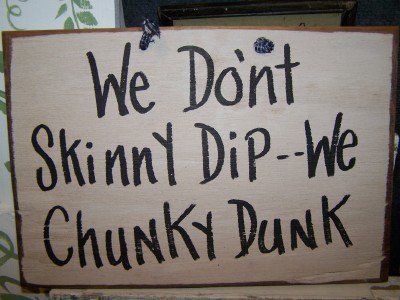 We Do'nt
Skinny Dip--We
Chunky Dunk